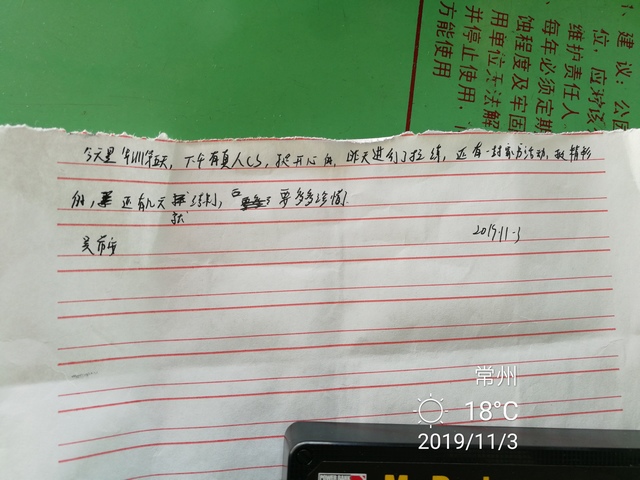 今天是军训第五天，下午有真人CS，挺开心的，昨天进行了拉练，还有一封家书活动，挺精彩
的，还有几天就结束了，要多多珍惜！
2019.11.3
建议：公
位、应对该
维护责任人
每年必须定期
蚀程度及牢固
用单位无法解
并停止使用，
方能使用
常州
18°C
2019/11/3
POWER BANK